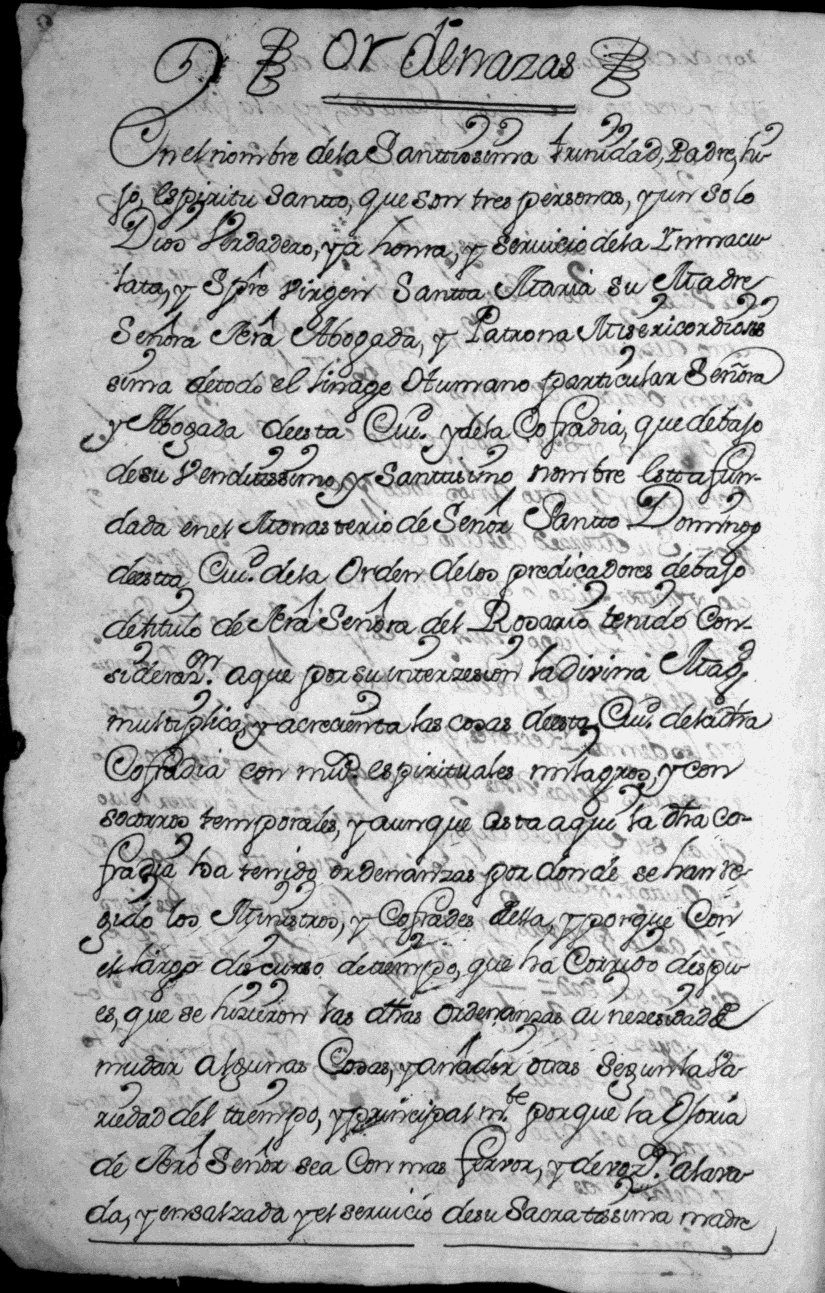 Ordenazas
En el nombre de la Santtissima trinidad, Padre, hi-
jo, espiritu Santto, que son tres personas, y un solo
Dios Verdadero, y a honra, y seruicio de la Inmacu-
lata, y Spre virgen Santta Maria su Madre
Señora nra Abogada, y Patrona Misericordiosis
sima de todo el linage Humano particular Señora
y Abogada de esta Ciu.d y de la Cofradia, que debajo
de su Venditissimo, y Santtisimo nombre estta fun-
dada en el Monasterio de Señor Santto Domingo
de estta Ciu.d de la Orden de los predicadores debajo
de titulo de Nra Señora del Rosario tenido Con-
sideraz.on a que por su interzesion la Divina Mag.d
multiplica, y acrecienta las cosas de esta Ciu.d de la dha
Cofradia con mu.s espirituales milagros, y con
socorros temporales, y aunque asta aqui la dha co-
fradia ha tenido ordenanzas por donde se han re-
gido los Ministros, y Cofrades della, y porque Con
el largo discurso de tiempo, que ha Corrido despu-
es, que se hizieron las dhas ordenanzas ai nezesidad de
mudar algunas Cosas, y añadir otras segun la va-
riedad del tiempo, y principalm.te porque la Gloria
de Nro Señor sea Con mas fervor, y devoz.n alava-
da, y ensalzada y el seruicio de su Sacratissima madre